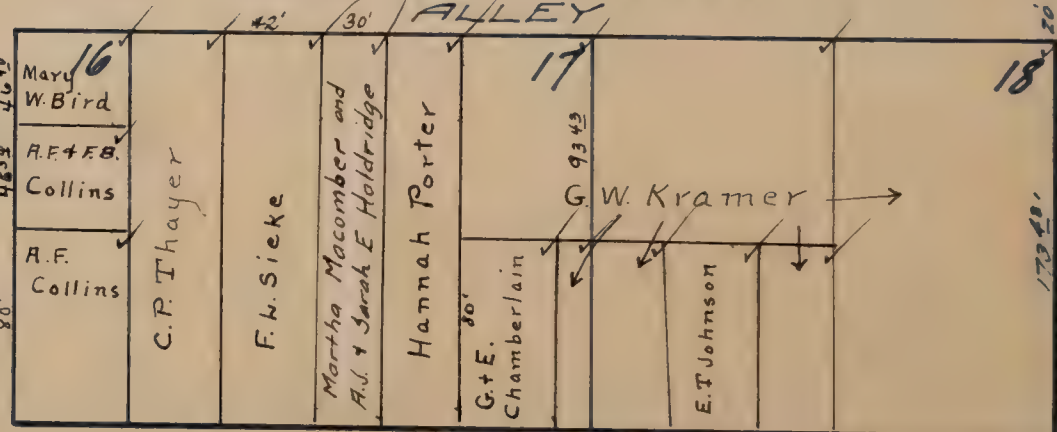 42'
30'
ALLEY
20'
16
17
18
Mary
W. Bird
A.F. & F.B.
Collins
A.F.
Collins
80'
C.P. Thayer
F.W. Sieke
Martha Macomber and
A.J. & Sarah E Holdridge
Hannah Porter
93 43
G. W. Kramer
80'
G. + E.
Chamberlain
E. T Johnson